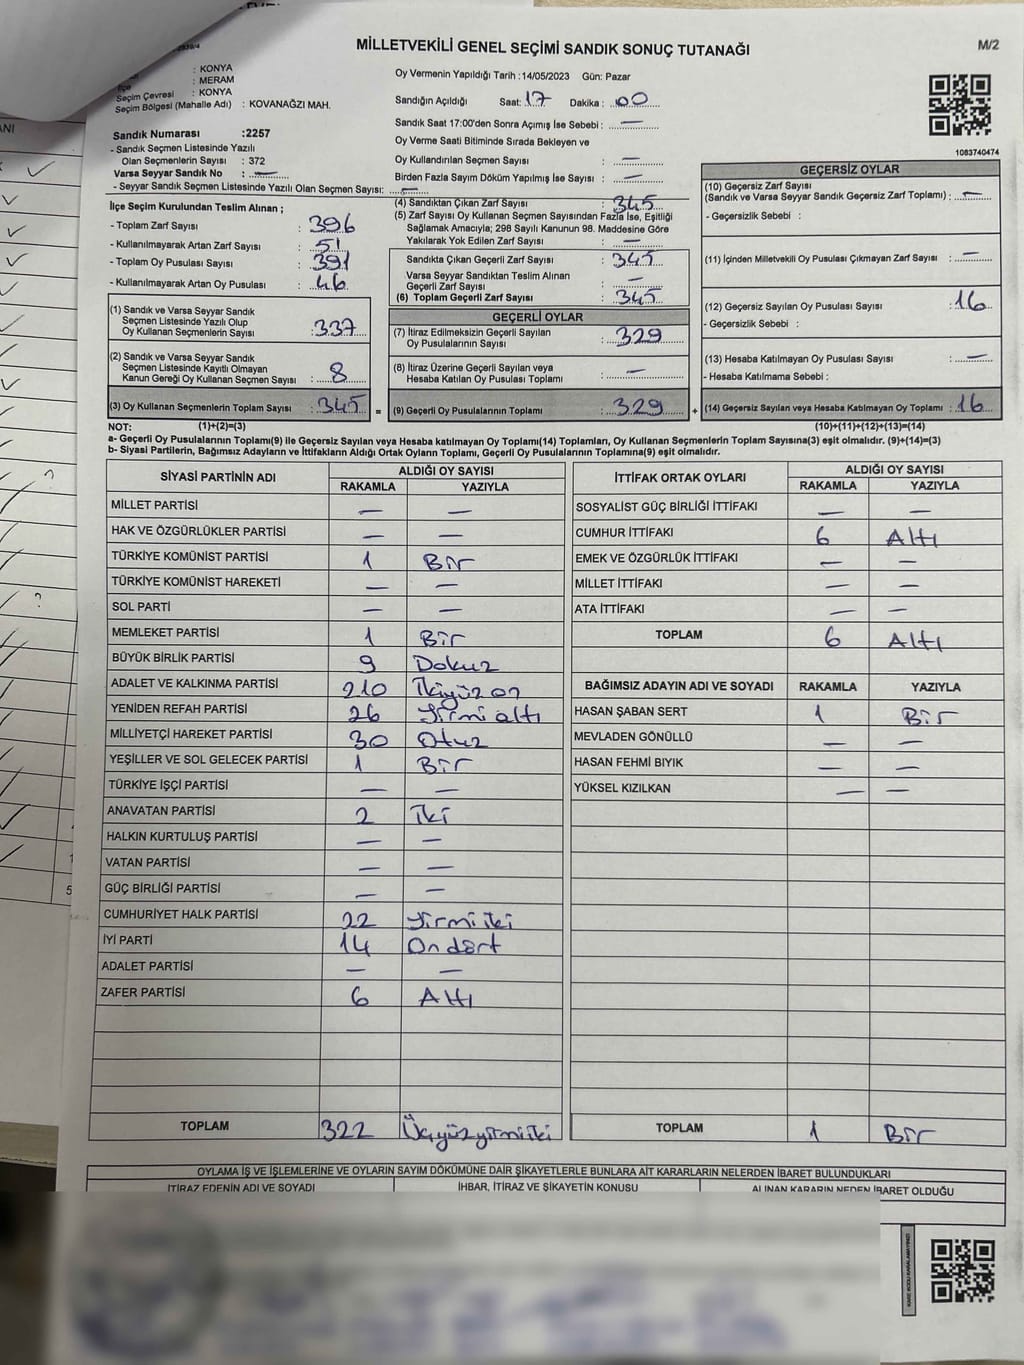 MİLLETVEKİLİ GENEL SEÇİMİ SANDIK SONUÇ TUTANAĞI
M/2
: KONYA
: MERAM
Seçim Çevresi : KONYA
Seçim Bölgesi (Mahalle Adı) : KOVANAĞZI MAH.
Sandık Numarası :2257
- Sandık Seçmen Listesinde Yazılı
Olan Seçmenlerin Sayısı : 372
Varsa Seyyar Sandık No : —
- Seyyar Sandık Seçmen Listesinde Yazılı Olan Seçmen Sayısı: —
Oy Vermenin Yapıldığı Tarih :14/05/2023 Gün: Pazar
Sandığın Açıldığı Saat: 17 Dakika : 00
Sandık Saat 17:00'den Sonra Açımış İse Sebebi : —
Oy Verme Saati Bitiminde Sırada Bekleyen ve
Oy Kullandırılan Seçmen Sayısı : —
Birden Fazla Sayım Döküm Yapılmış İse Sayısı : —
1083740474
İlçe Seçim Kurulundan Teslim Alınan ;
- Toplam Zarf Sayısı : 396
- Kullanılmayarak Artan Zarf Sayısı : 51
- Toplam Oy Pusulası Sayısı : 391
- Kullanılmayarak Artan Oy Pusulası : 46
(1) Sandık ve Varsa Seyyar Sandık
Seçmen Listesinde Yazılı Olup
Oy Kullanan Seçmenlerin Sayısı : 337
(2) Sandık ve Varsa Seyyar Sandık
Seçmen Listesinde Kayıtlı Olmayan
Kanun Gereği Oy Kullanan Seçmen Sayısı : 8
(3) Oy Kullanan Seçmenlerin Toplam Sayısı : 345 =
(4) Sandıktan Çıkan Zarf Sayısı : 345
(5) Zarf Sayısı Oy Kullanan Seçmen Sayısından Fazla İse, Eşitliği
Sağlamak Amacıyla; 298 Sayılı Kanunun 98. Maddesine Göre
Yakılarak Yok Edilen Zarf Sayısı : —
Sandıkta Çıkan Geçerli Zarf Sayısı : 345
Varsa Seyyar Sandıktan Teslim Alınan
Geçerli Zarf Sayısı : —
(6) Toplam Geçerli Zarf Sayısı : 345
GEÇERLİ OYLAR
(7) İtiraz Edilmeksizin Geçerli Sayılan
Oy Pusulalarının Sayısı : 329
(8) İtiraz Üzerine Geçerli Sayılan veya
Hesaba Katılan Oy Pusulası Toplamı : —
(9) Geçerli Oy Pusulalarının Toplamı : 329 +
GEÇERSİZ OYLAR
(10) Geçersiz Zarf Sayısı
(Sandık ve Varsa Seyyar Sandık Geçersiz Zarf Toplamı) : —
- Geçersizlik Sebebi :
(11) İçinden Milletvekili Oy Pusulası Çıkmayan Zarf Sayısı : —
(12) Geçersiz Sayılan Oy Pusulası Sayısı : 16
- Geçersizlik Sebebi :
(13) Hesaba Katılmayan Oy Pusulası Sayısı : —
- Hesaba Katılmama Sebebi :
(14) Geçersiz Sayılan veya Hesaba Katılmayan Oy Toplamı : 16
NOT: (1)+(2)=(3) (10)+(11)+(12)+(13)=(14)
a- Geçerli Oy Pusulalarının Toplamı(9) ile Geçersiz Sayılan veya Hesaba katılmayan Oy Toplamı(14) Toplamları, Oy Kullanan Seçmenlerin Toplam Sayısına(3) eşit olmalıdır. (9)+(14)=(3)
b- Siyasi Partilerin, Bağımsız Adayların ve İttifakların Aldığı Ortak Oyların Toplamı, Geçerli Oy Pusulalarının Toplamına(9) eşit olmalıdır.
SİYASİ PARTİNİN ADI ALDIĞI OY SAYISI
RAKAMLA YAZIYLA
MİLLET PARTİSİ — —
HAK VE ÖZGÜRLÜKLER PARTİSİ — —
TÜRKİYE KOMÜNİST PARTİSİ 1 Bir
TÜRKİYE KOMÜNİST HAREKETİ — —
SOL PARTİ — —
MEMLEKET PARTİSİ 1 Bir
BÜYÜK BİRLİK PARTİSİ 9 Dokuz
ADALET VE KALKINMA PARTİSİ 210 İkiyüz on
YENİDEN REFAH PARTİSİ 26 Yirmi altı
MİLLİYETÇİ HAREKET PARTİSİ 30 Otuz
YEŞİLLER VE SOL GELECEK PARTİSİ 1 Bir
TÜRKİYE İŞÇİ PARTİSİ — —
ANAVATAN PARTİSİ 2 İki
HALKIN KURTULUŞ PARTİSİ — —
VATAN PARTİSİ — —
GÜÇ BİRLİĞİ PARTİSİ — —
CUMHURİYET HALK PARTİSİ 22 Yirmi iki
İYİ PARTİ 14 On dört
ADALET PARTİSİ — —
ZAFER PARTİSİ 6 Altı
TOPLAM 322 Üçyüzyirmiiki
İTTİFAK ORTAK OYLARI ALDIĞI OY SAYISI
RAKAMLA YAZIYLA
SOSYALİST GÜÇ BİRLİĞİ İTTİFAKI — —
CUMHUR İTTİFAKI 6 Altı
EMEK VE ÖZGÜRLÜK İTTİFAKI — —
MİLLET İTTİFAKI — —
ATA İTTİFAKI — —
TOPLAM 6 Altı
BAĞIMSIZ ADAYIN ADI VE SOYADI RAKAMLA YAZIYLA
HASAN ŞABAN SERT 1 Bir
MEVLADEN GÖNÜLLÜ — —
HASAN FEHMİ BIYIK — —
YÜKSEL KIZILKAN — —
TOPLAM 1 Bir
OYLAMA İŞ VE İŞLEMLERİNE VE OYLARIN SAYIM DÖKÜMÜNE DAİR ŞİKAYETLERLE BUNLARA AİT KARARLARIN NELERDEN İBARET BULUNDUKLARI
İTİRAZ EDENİN ADI VE SOYADI İHBAR, İTİRAZ VE ŞİKAYETİN KONUSU ALINAN KARARIN NEDEN İBARET OLDUĞU